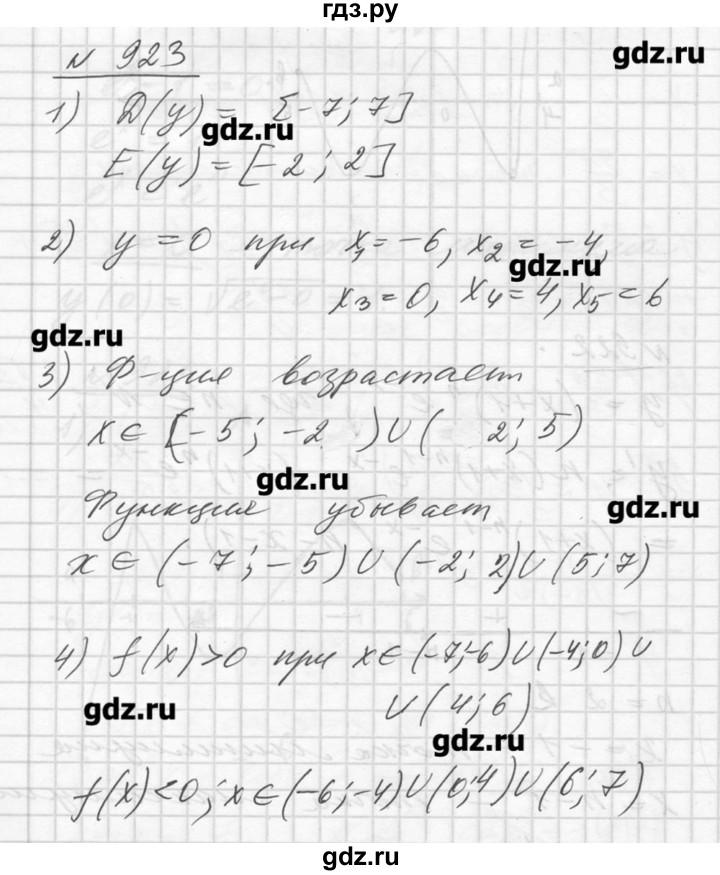 гдз.ру
№ 923
gdz.ru
1) D(y) = [-7; 7]
gdz.ru
E(y) = [-2; 2]
2) y = 0 при x₁ = -6, x₂ = -4,
gdz.ru
x₃ = 0, x₄ = 4, x₅ = 6
gdz.ru
3) Ф-ция возрастает
x ∈ [-5; -2 ) ∪ ( 2; 5)
gdz.ru
Функция убывает
gdz.ru
x ∈ (-7; -5) ∪ (-2; 2) ∪ (5; 7)
4) f(x) > 0 при x ∈ (-7;-6) ∪ (-4; 0) ∪
∪ (4; 6)
gdz.ru
gdz.ru
f(x) < 0; x ∈ (-6; -4) ∪ (0;4) ∪ (6; 7)
gdz.ru